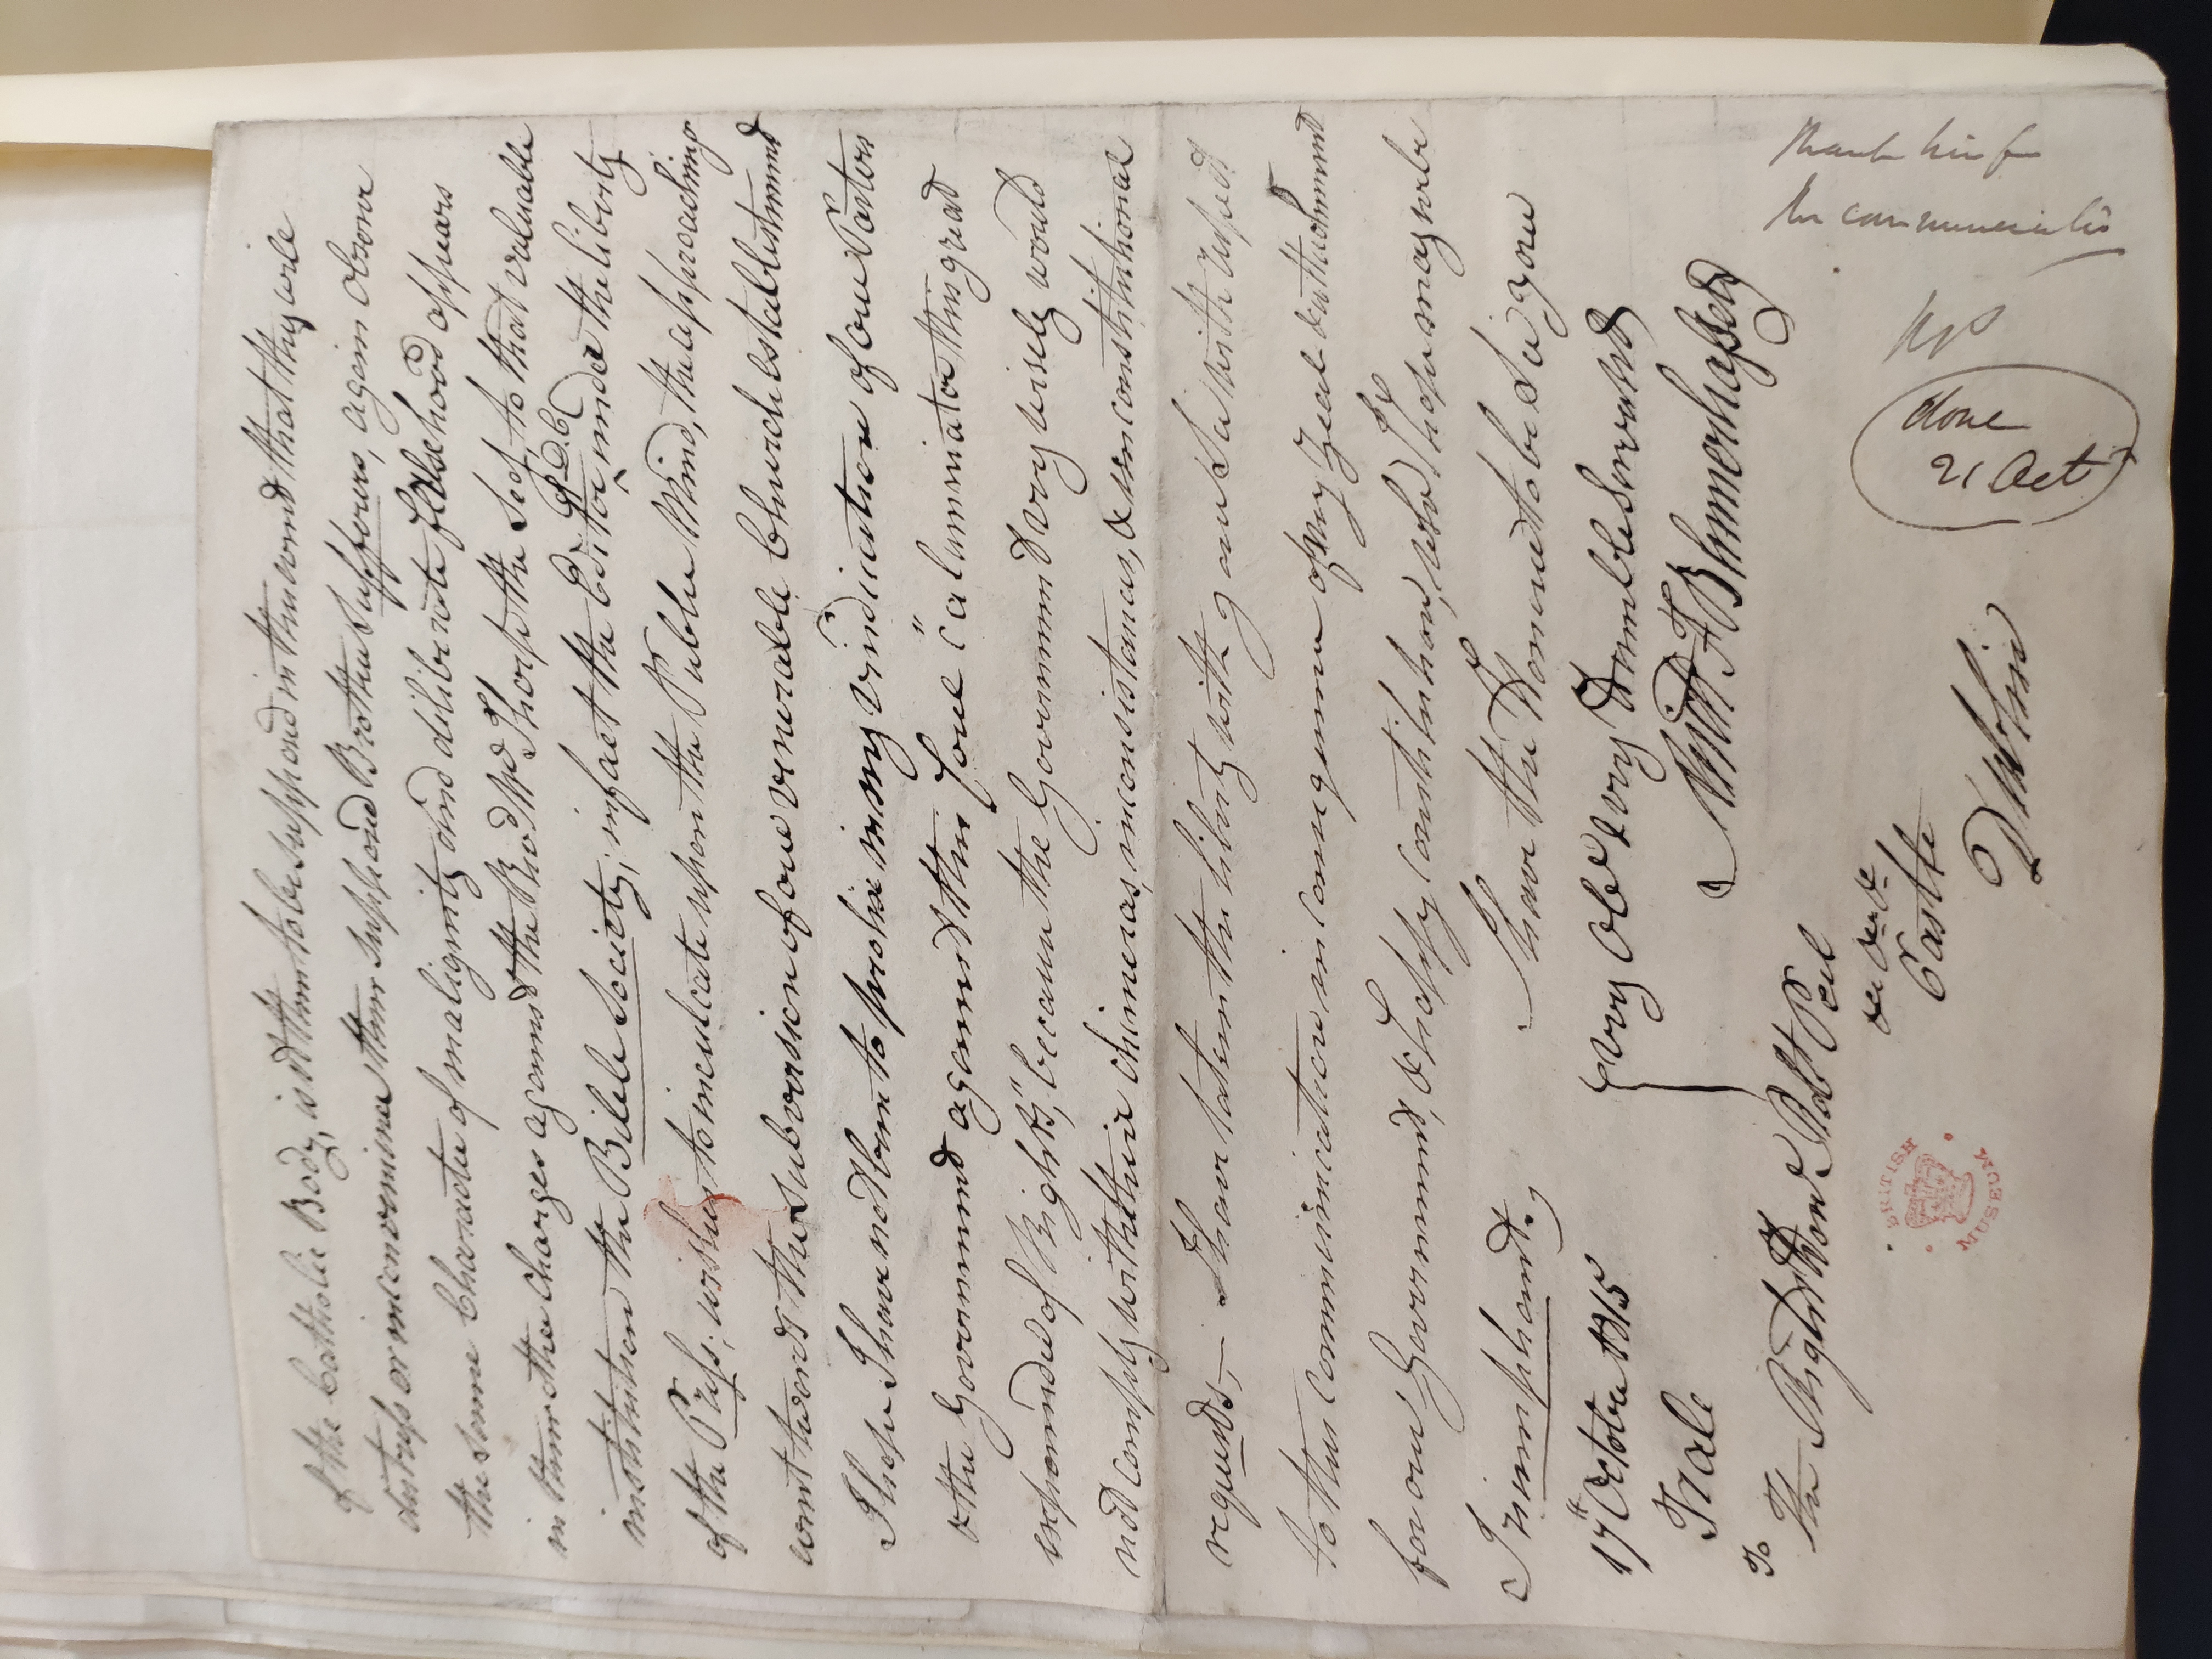 of the Catholic Body, is it then to be supposed in this event that they will
distress or inconvenience their supposed Brother Sufferers, again observe
the same Character of malignity and deliberate falsehood appears
in their other charges against the Revd Mr Thorp, the Secy to that valuable
institution the Bible Society; in fact the Editor of D.C. under the liberty
of the Press; wishes to inculcate upon the Public Mind, the approaching
events towards the subversion of our venerable Church establishment
I hope I have not been to prolix in my vindication of our Pastors
& the Government against this foul "Calumniator this great
expounder of Rights," because the Government very wisely would
not comply with their chimeras, inconsistancies, & unconstitutional
requests,— I have taken the liberty with your Sir with respect
to this communication in consequence of my zeal & attachment
for our Government, & happy Constitution, which I hope may be
Triumphant.,
I have the Honour to be Sir your
very Obt & very Humble Servant
Willm F Blennerhassett
17th October 1815
Tralee
To
The Right Honble Robt Peel
&c &c &c
Castle
Dublin
BRITISH MUSEUM
Thank him for
his communicatio
RP
done
21 Oct